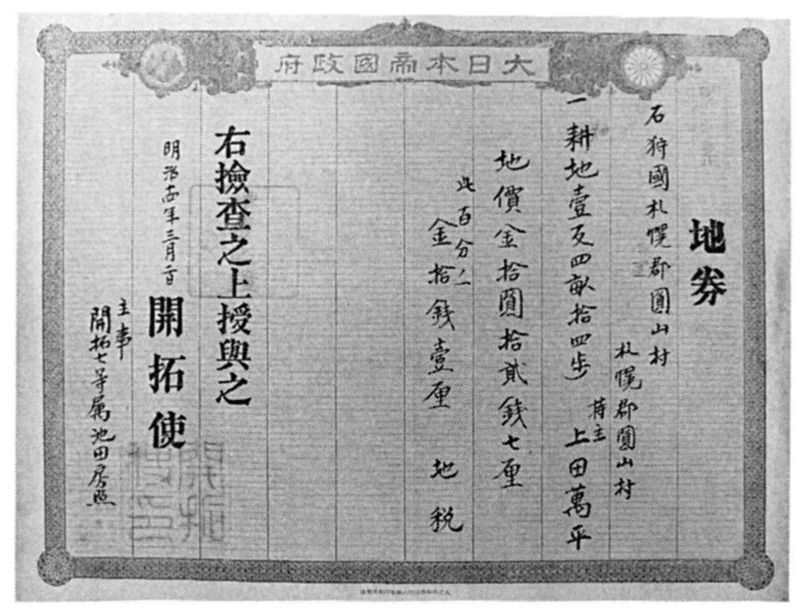 大日本帝國政府
地券
石狩國札幌郡圓山村
札幌郡圓山村
一耕地壹反四畝拾四歩
持主 上田萬平
地價金拾圓拾貳錢七厘
此百分ノ一
金拾錢壹厘 地税
右撿查之上授與之
明治 年三月 日
開拓使
主事
開拓七等属池田房照